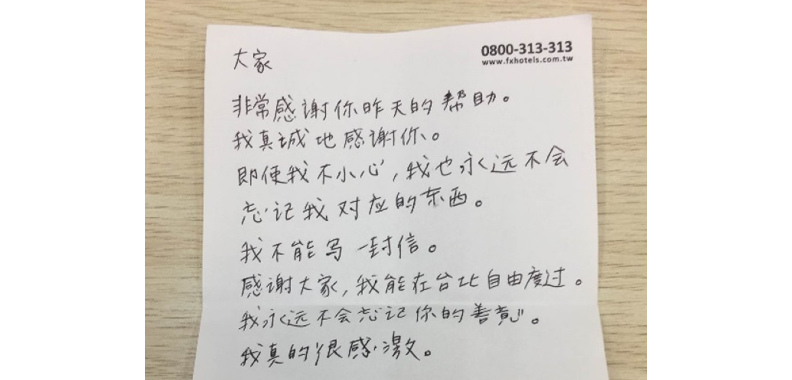 0800-313-313
www.fxhotels.com.tw
大家
非常感谢你昨天的帮助。
我真诚地感谢你。
即使我不小心,我也永远不会
忘记我对应的东西。
我不能写一封信。
感谢大家,我能在台北自由度过。
我永远不会忘记你的善意。
我真的很感激。